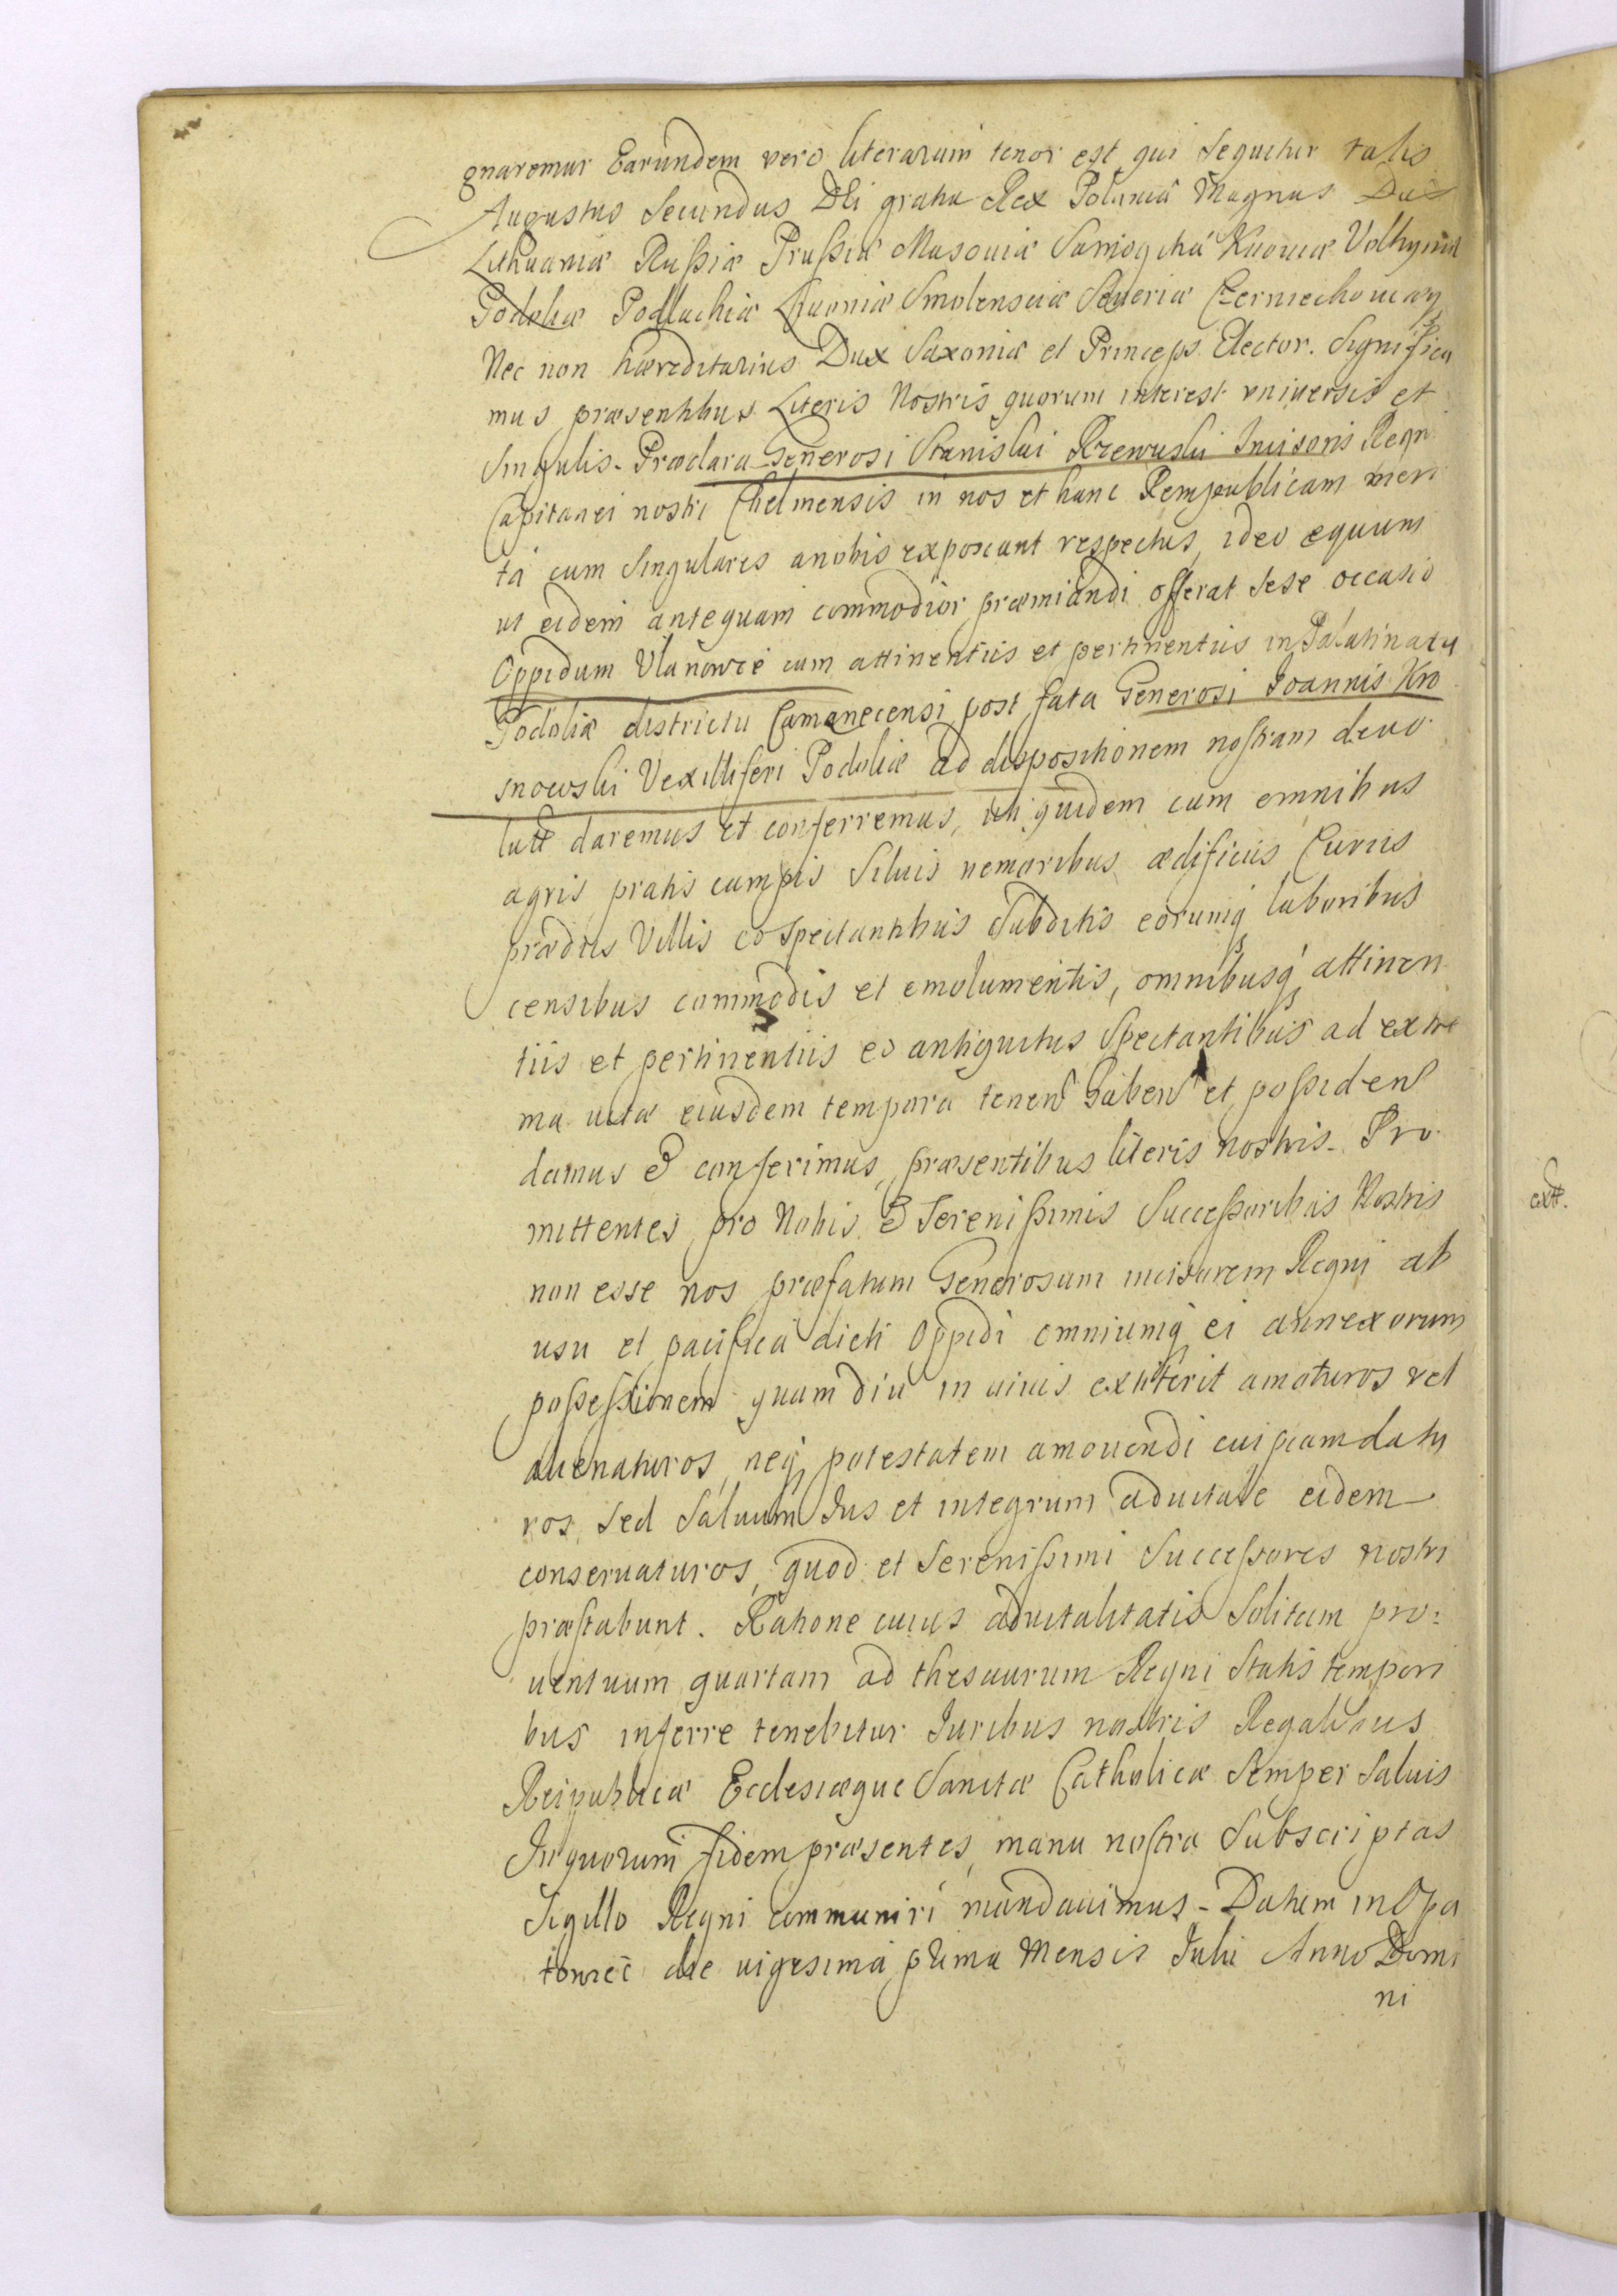 gnaremur Earundem vero literarum tenor est qui sequitur talis
Augustus Secundus DEi gratia Rex Poloniæ Magnus Dux
Lithuaniæ Russiæ Prussiæ Masouiæ Samogitiæ Kiiouiæ Volhyniæ
Podoliæ Podlachiæ Liuoniæ Smolensciæ Seueriæ Czerniechouiæq3
Nec non hæreditarius Dux Saxoniæ et Princeps Elector. Significa
mus præsentibus Literis Nostris quorum interest vniuersis et
Singulis. Præclara Generosi Stanislai Rzewuski Inuisoris Regni
Capitanei nostri Chelmensis in nos et hanc Rempublicam meri
ta cum Singulares a nobis exposcant respectus, ideo æquum
ut eidem antequam commodior præmiandi offerat sese occasio
Oppidum Vlanowce cum attinentiis et pertinentiis in Palatinatu
Podoliæ districtu Camenecensi post fata Generosi Joannis Kro
snowski Vexilliferi Podoliæ ad dispositionem nostram deuo
lutt daremus et conferremus, uti quidem cum omnibus
agris pratis campis Siluis nemoribus ædificiis Curiis
prædiis Villis eo spectantibus Subditis eorumq3 laboribus
censibus commodis et emolumentis, omnibusq3 attinen
tiis et pertinentiis eo antiquitus Spectantibus ad extre
ma uitæ eiusdem tempora tenen haben et possiden
damus & conferimus, præsentibus literis nostris. Pro
mittentes pro Nobis & Serenissimis Successoribus Nostris
non esse nos præfatum Generosum incisorem Regni ab
usu et pacifica dicti Oppidi omniumq ei annexorum
possessionem quam diu in uiuis extiterit amoturos vel
alienaturos, neq potestatem amouendi cuipiam datu
ros, sed Saluum Jus et integrum aduitale eidem
conseruaturos, quod et Serenissimi Successores nostri
præstabunt. Ratione cuius aduitalitatis Solitam pro:
uentuum quartam ad thesaurum Regni Statis tempori
bus inferre tenebitur Juribus nostris Regalibus
Reipublicæ Ecclesiæque Sanctæ Catholicæ Semper Saluis
In quorum fidem præsentes, manu nostra Subscriptas
Sigillo Regni communiri mandauimus - Datum in Opa
towiec die uigesima prima Mensis Julii Anno Domi
ni
extt.